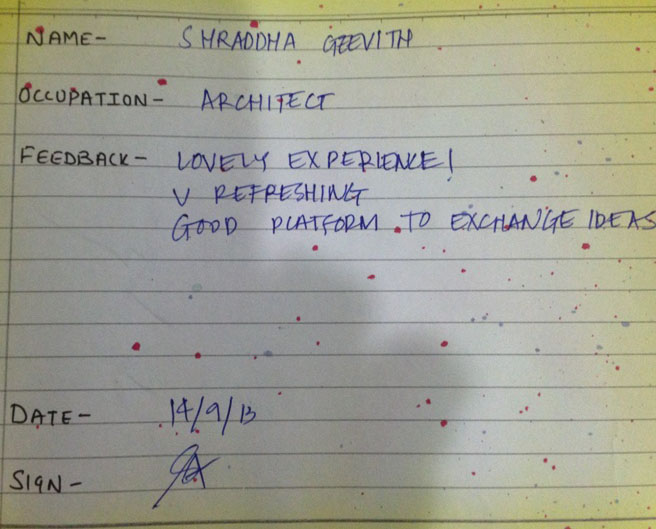 NAME- SHRADDHA GEEVITH
OCCUPATION- ARCHITECT
FEEDBACK- LOVELY EXPERIENCE!
V REFRESHING
GOOD PLATFORM TO EXCHANGE IDEAS
DATE- 14/9/13
SIGN-